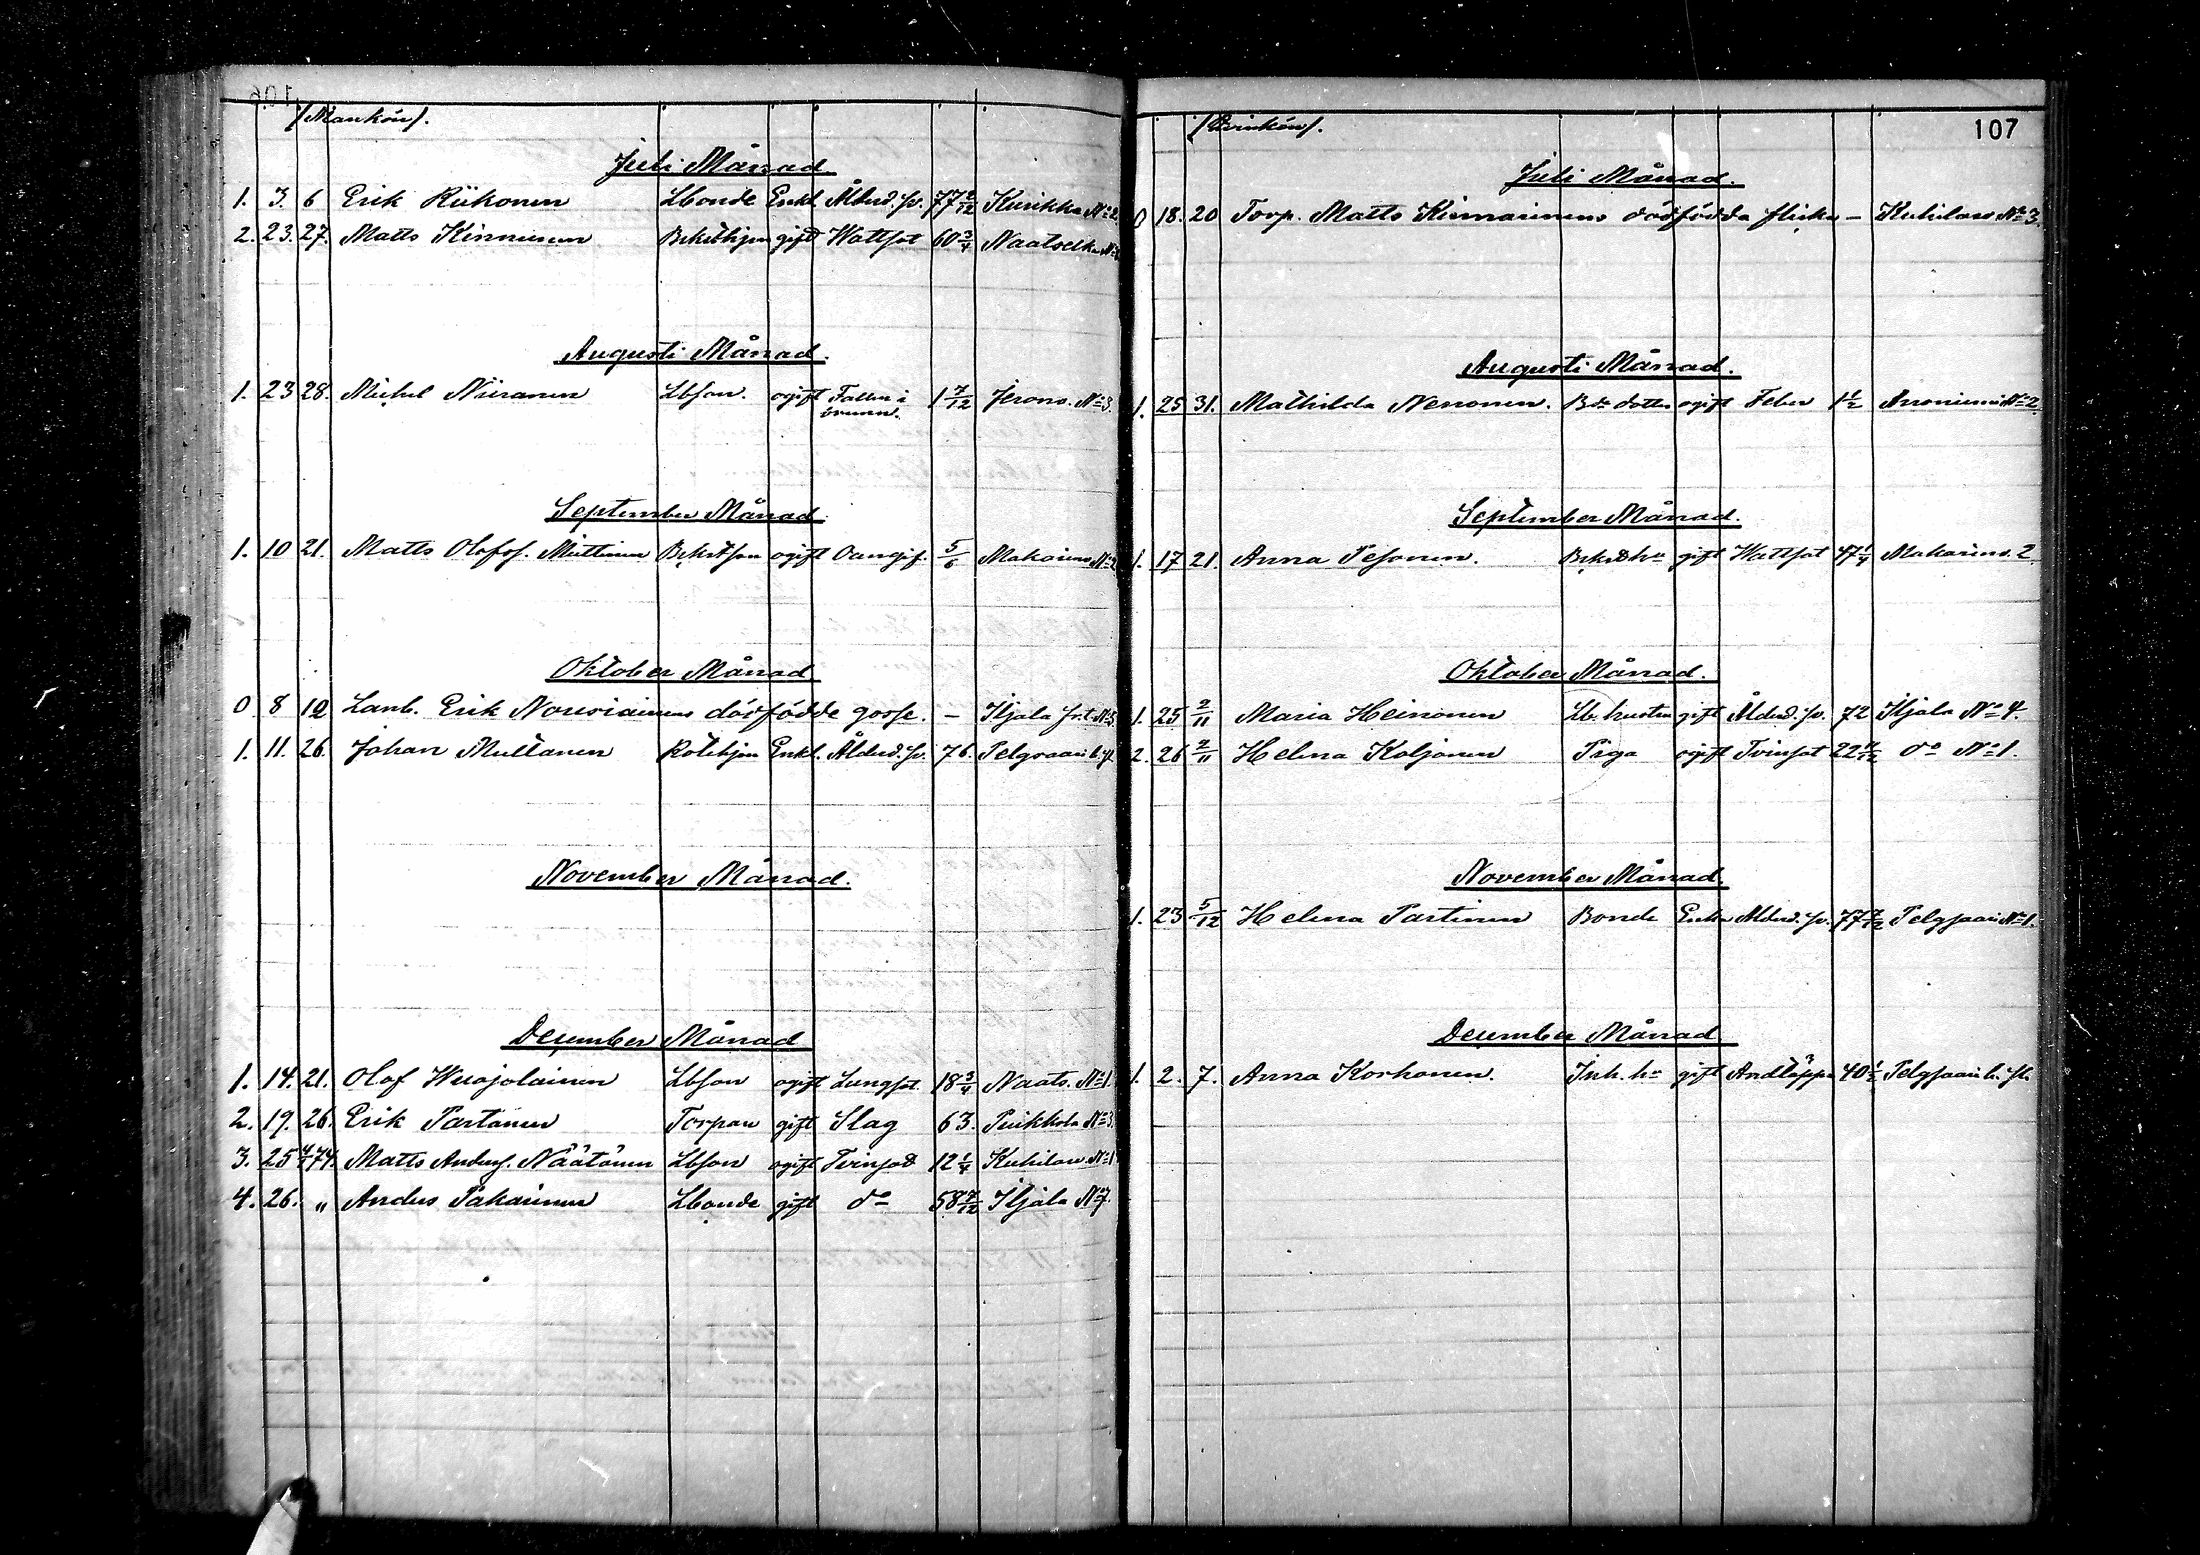 /Mankön/.
Juli Månad.
1. 3. 6 Erik Riikonen Lbonde Enkl. Ålderd. sv. 77 2/12 Kurikka No 2
2. 23. 27. Matts Kinnunen gift Wattsot 60 3/4 Naatselkä
Augusti Månad.
1. 23 28. Michel Niiranen Lbson. ogift Fallen i brunn. 1 7/12 Jerono. No 3.
September Månad.
1. 10 21. Matts Olofss. Miettinen ogift Oangif. 5/6 No 2
Oktober Månad
0 8 12 Lanb. Erik Nousiainens dödfödde gosse. — Iljala No 5
1. 11. 26. Johan Multanen Enkl. Ålderd. sv. 76. Pelgsaari
November Månad.
December Månad
1. 14. 21. Olof Wuojolainen Lbson ogift Lungsot. 18 3/4 Naats. No 1.
2. 19. 26. Erik Partanen Torpare gift Slag 63. Puikkola No 3.
3. 25 4/1 74. Matts Anderss. Näätänen Lbson ogift Tvinsot 12 1/4 Kukilax No 1
4. 26. " Anders Pakarinen Lbonde gift do 58 7/12 Iljala No 7.
107
/Qvinkön/.
Juli Månad.
0 18. 20 Torp. Matts Kinnunens dödfödda flicka — Kukilax No 3.
Augusti Månad.
1. 25 31. Mathilda Nenonen. Bde dotter ogift Feber 1 1/2 Anoniemi No 2.
September Månad.
1. 17 21. Anna Pesonen. gift Wattsot 47 1/4 2
Oktober Månad.
1. 25 2/11 Maria Heinonen Lb. hustru gift Ålderd. sv. 72 Iljala No 4.
2. 26 2/11 Helena Koljonen Piga ogift Tvinsot 22 do No 1.
November Månad.
1. 23 5/12 Helena Partinen Bonde Enka Ålderd. sv. 77 7/12 Pelgsaari No 1.
December Månad
1. 2. 7. Anna Korhonen. Inh. hu gift Andtäppa 40 1/2 Pelgsaari